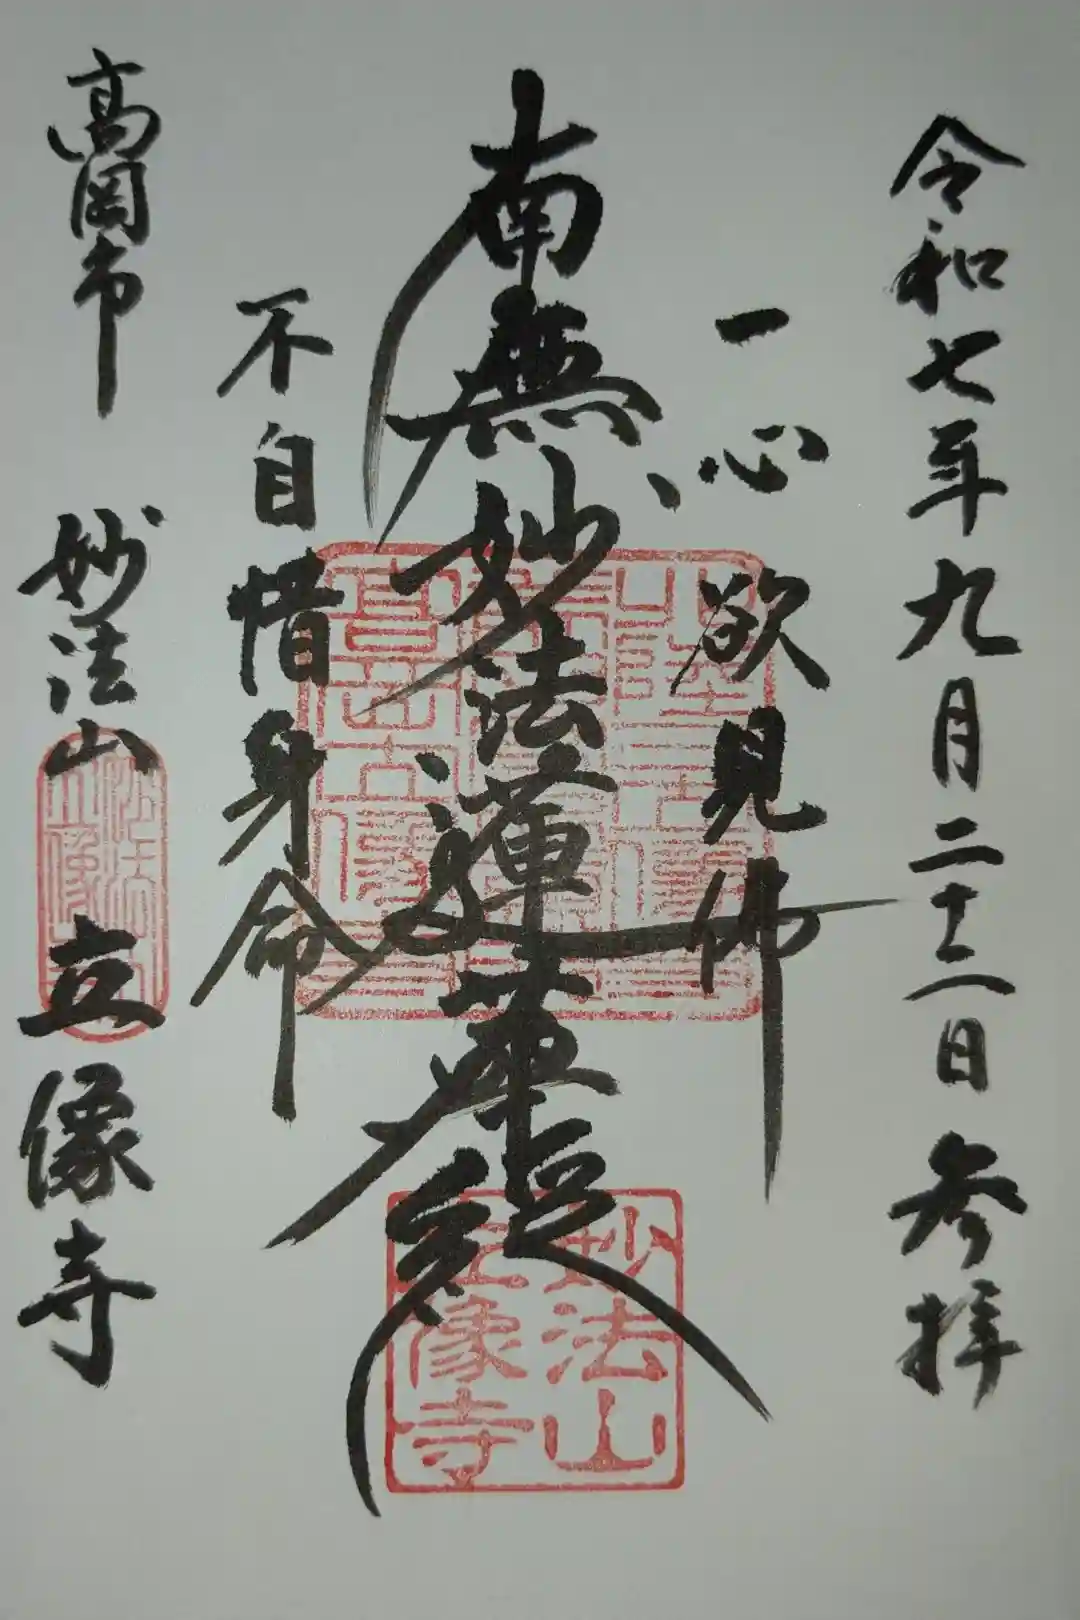 令和七年九月二十三日 参拝
一心欲見佛
南無妙法蓮華経
不自惜身命
高岡市 妙法山 立像寺
妙法山
立像寺